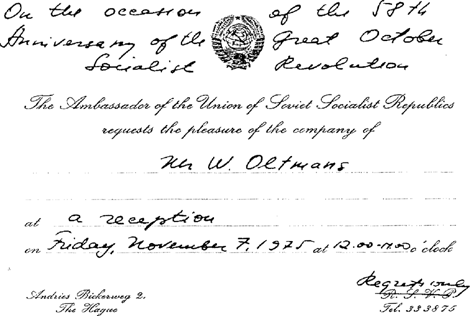 On the occasion of the 58th
Anniversary of the Great October
Socialist Revolution
The Ambassador of the Union of Soviet Socialist Republics
requests the pleasure of the company of
Mr W. Oltmans
at a reception
on Friday, November 7, 1975 at 12.00-14.00 o'clock
Regrets only
Andries Bickerweg 2. R. S. V. P.
The Hague Tel. 333875